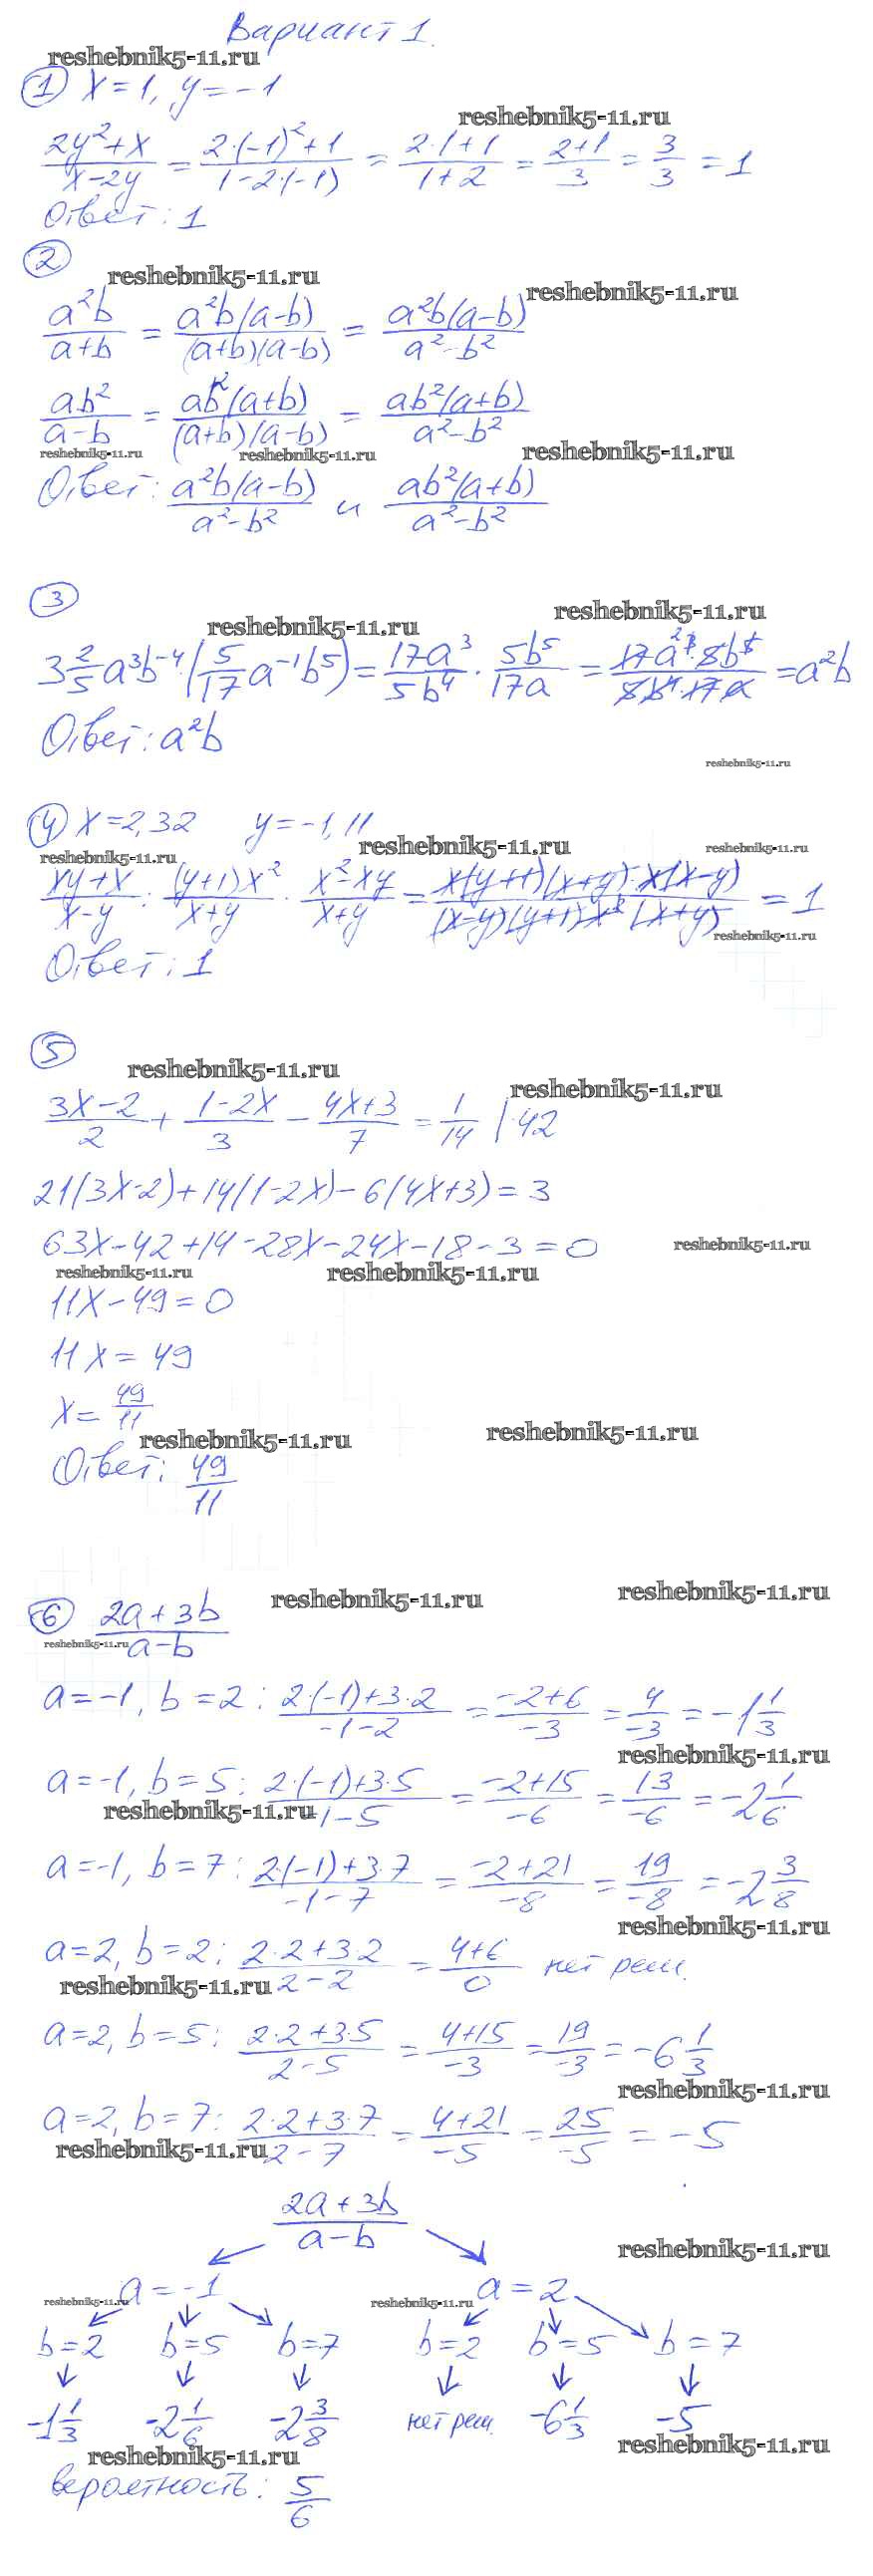 Вариант 1.
reshebnik5-11.ru
① x=1, y=-1
reshebnik5-11.ru
(2y²+x)/(x-2y) = (2·(-1)²+1)/(1-2·(-1)) = (2·1+1)/(1+2) = (2+1)/3 = 3/3 = 1
Ответ: 1
②
reshebnik5-11.ru
reshebnik5-11.ru
a²b/(a+b) = a²b(a-b)/((a+b)(a-b)) = a²b(a-b)/(a²-b²)
ab²/(a-b) = ab²(a+b)/((a+b)(a-b)) = ab²(a+b)/(a²-b²)
reshebnik5-11.ru reshebnik5-11.ru reshebnik5-11.ru
Ответ: a²b(a-b)/(a²-b²) и ab²(a+b)/(a²-b²)
③
reshebnik5-11.ru reshebnik5-11.ru
3 2/5 a³b⁻⁴·(5/17 a⁻¹b⁵) = 17a³/5b⁴ · 5b⁵/17a = 17a³·5b⁵/5b⁴·17a = a²b
Ответ: a²b
reshebnik5-11.ru
④ x=2,32 y=-1,11
reshebnik5-11.ru reshebnik5-11.ru reshebnik5-11.ru
(xy+x)/(x-y) : (y+1)x²/(x+y) · (x²-xy)/(x+y) = x(y+1)(x+y)·x(x-y)/((x-y)(y+1)x²(x+y)) = 1
reshebnik5-11.ru
Ответ: 1
⑤
reshebnik5-11.ru reshebnik5-11.ru
(3x-2)/2 + (1-2x)/3 - (4x+3)/7 = 1/14 |·42
21(3x-2)+14(1-2x)-6(4x+3)=3
63x-42+14-28x-24x-18-3=0
reshebnik5-11.ru
reshebnik5-11.ru reshebnik5-11.ru
11x-49=0
11x=49
x=49/11
reshebnik5-11.ru reshebnik5-11.ru
Ответ: 49/11
reshebnik5-11.ru reshebnik5-11.ru
⑥ (2a+3b)/(a-b)
reshebnik5-11.ru
a=-1, b=2: (2·(-1)+3·2)/(-1-2) = (-2+6)/-3 = 4/-3 = -1 1/3
reshebnik5-11.ru
a=-1, b=5: (2·(-1)+3·5)/(-1-5) = (-2+15)/-6 = 13/-6 = -2 1/6
reshebnik5-11.ru
a=-1, b=7: (2·(-1)+3·7)/(-1-7) = (-2+21)/-8 = 19/-8 = -2 3/8
reshebnik5-11.ru
a=2, b=2: (2·2+3·2)/(2-2) = (4+6)/0 нет реш.
reshebnik5-11.ru
a=2, b=5: (2·2+3·5)/(2-5) = (4+15)/-3 = 19/-3 = -6 1/3
reshebnik5-11.ru
a=2, b=7: (2·2+3·7)/(2-7) = (4+21)/-5 = 25/-5 = -5
reshebnik5-11.ru
(2a+3b)/(a-b)
reshebnik5-11.ru
a=-1 a=2
reshebnik5-11.ru reshebnik5-11.ru
b=2 b=5 b=7 b=2 b=5 b=7
-1 1/3 -2 1/6 -2 3/8 нет реш. -6 1/3 -5
reshebnik5-11.ru reshebnik5-11.ru
вероятность: 5/6